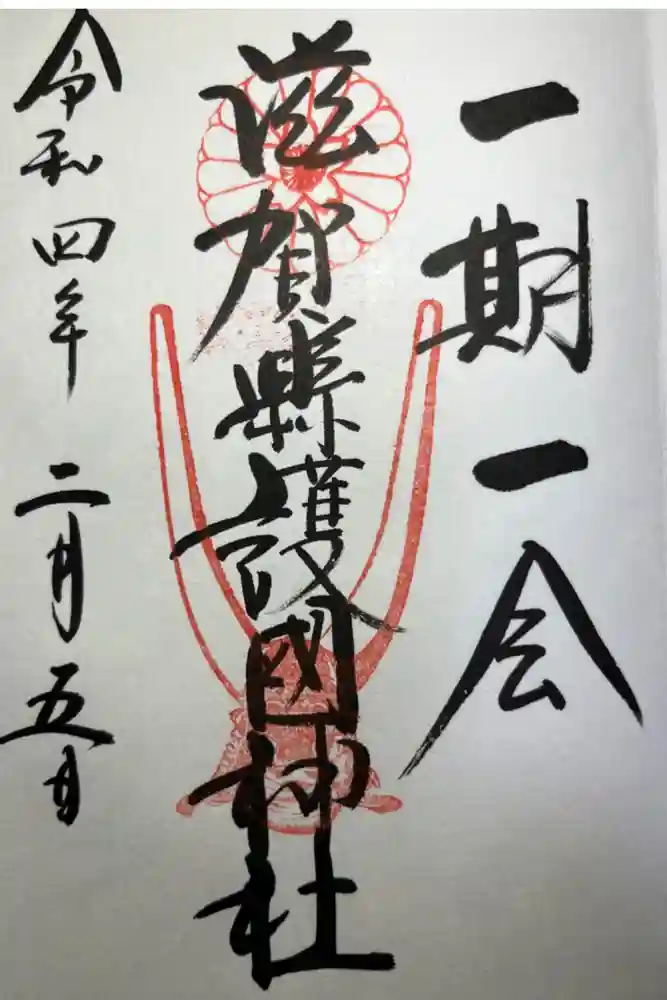 一期一会
滋賀縣護國神社
令和四年二月五日